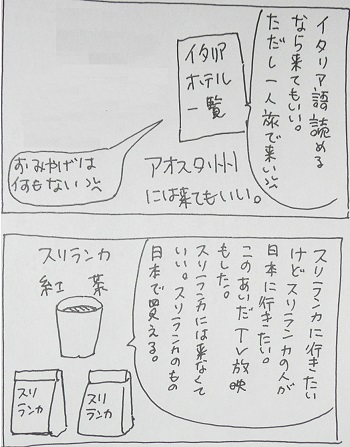 イタリア語読める
なら来てもいい。
ただし一人旅で来い
イタリア
ホテル
一覧
アオスタ州
には来てもいい。
おみやげは
何もない
スリランカに行きたい
けどスリランカの人が
日本に行きたい。
このあいだTV放映
もした。
スリランカには来なくて
いい。スリランカのもの
日本で買える。
スリランカ
紅茶
スリ
ランカ
スリ
ランカ